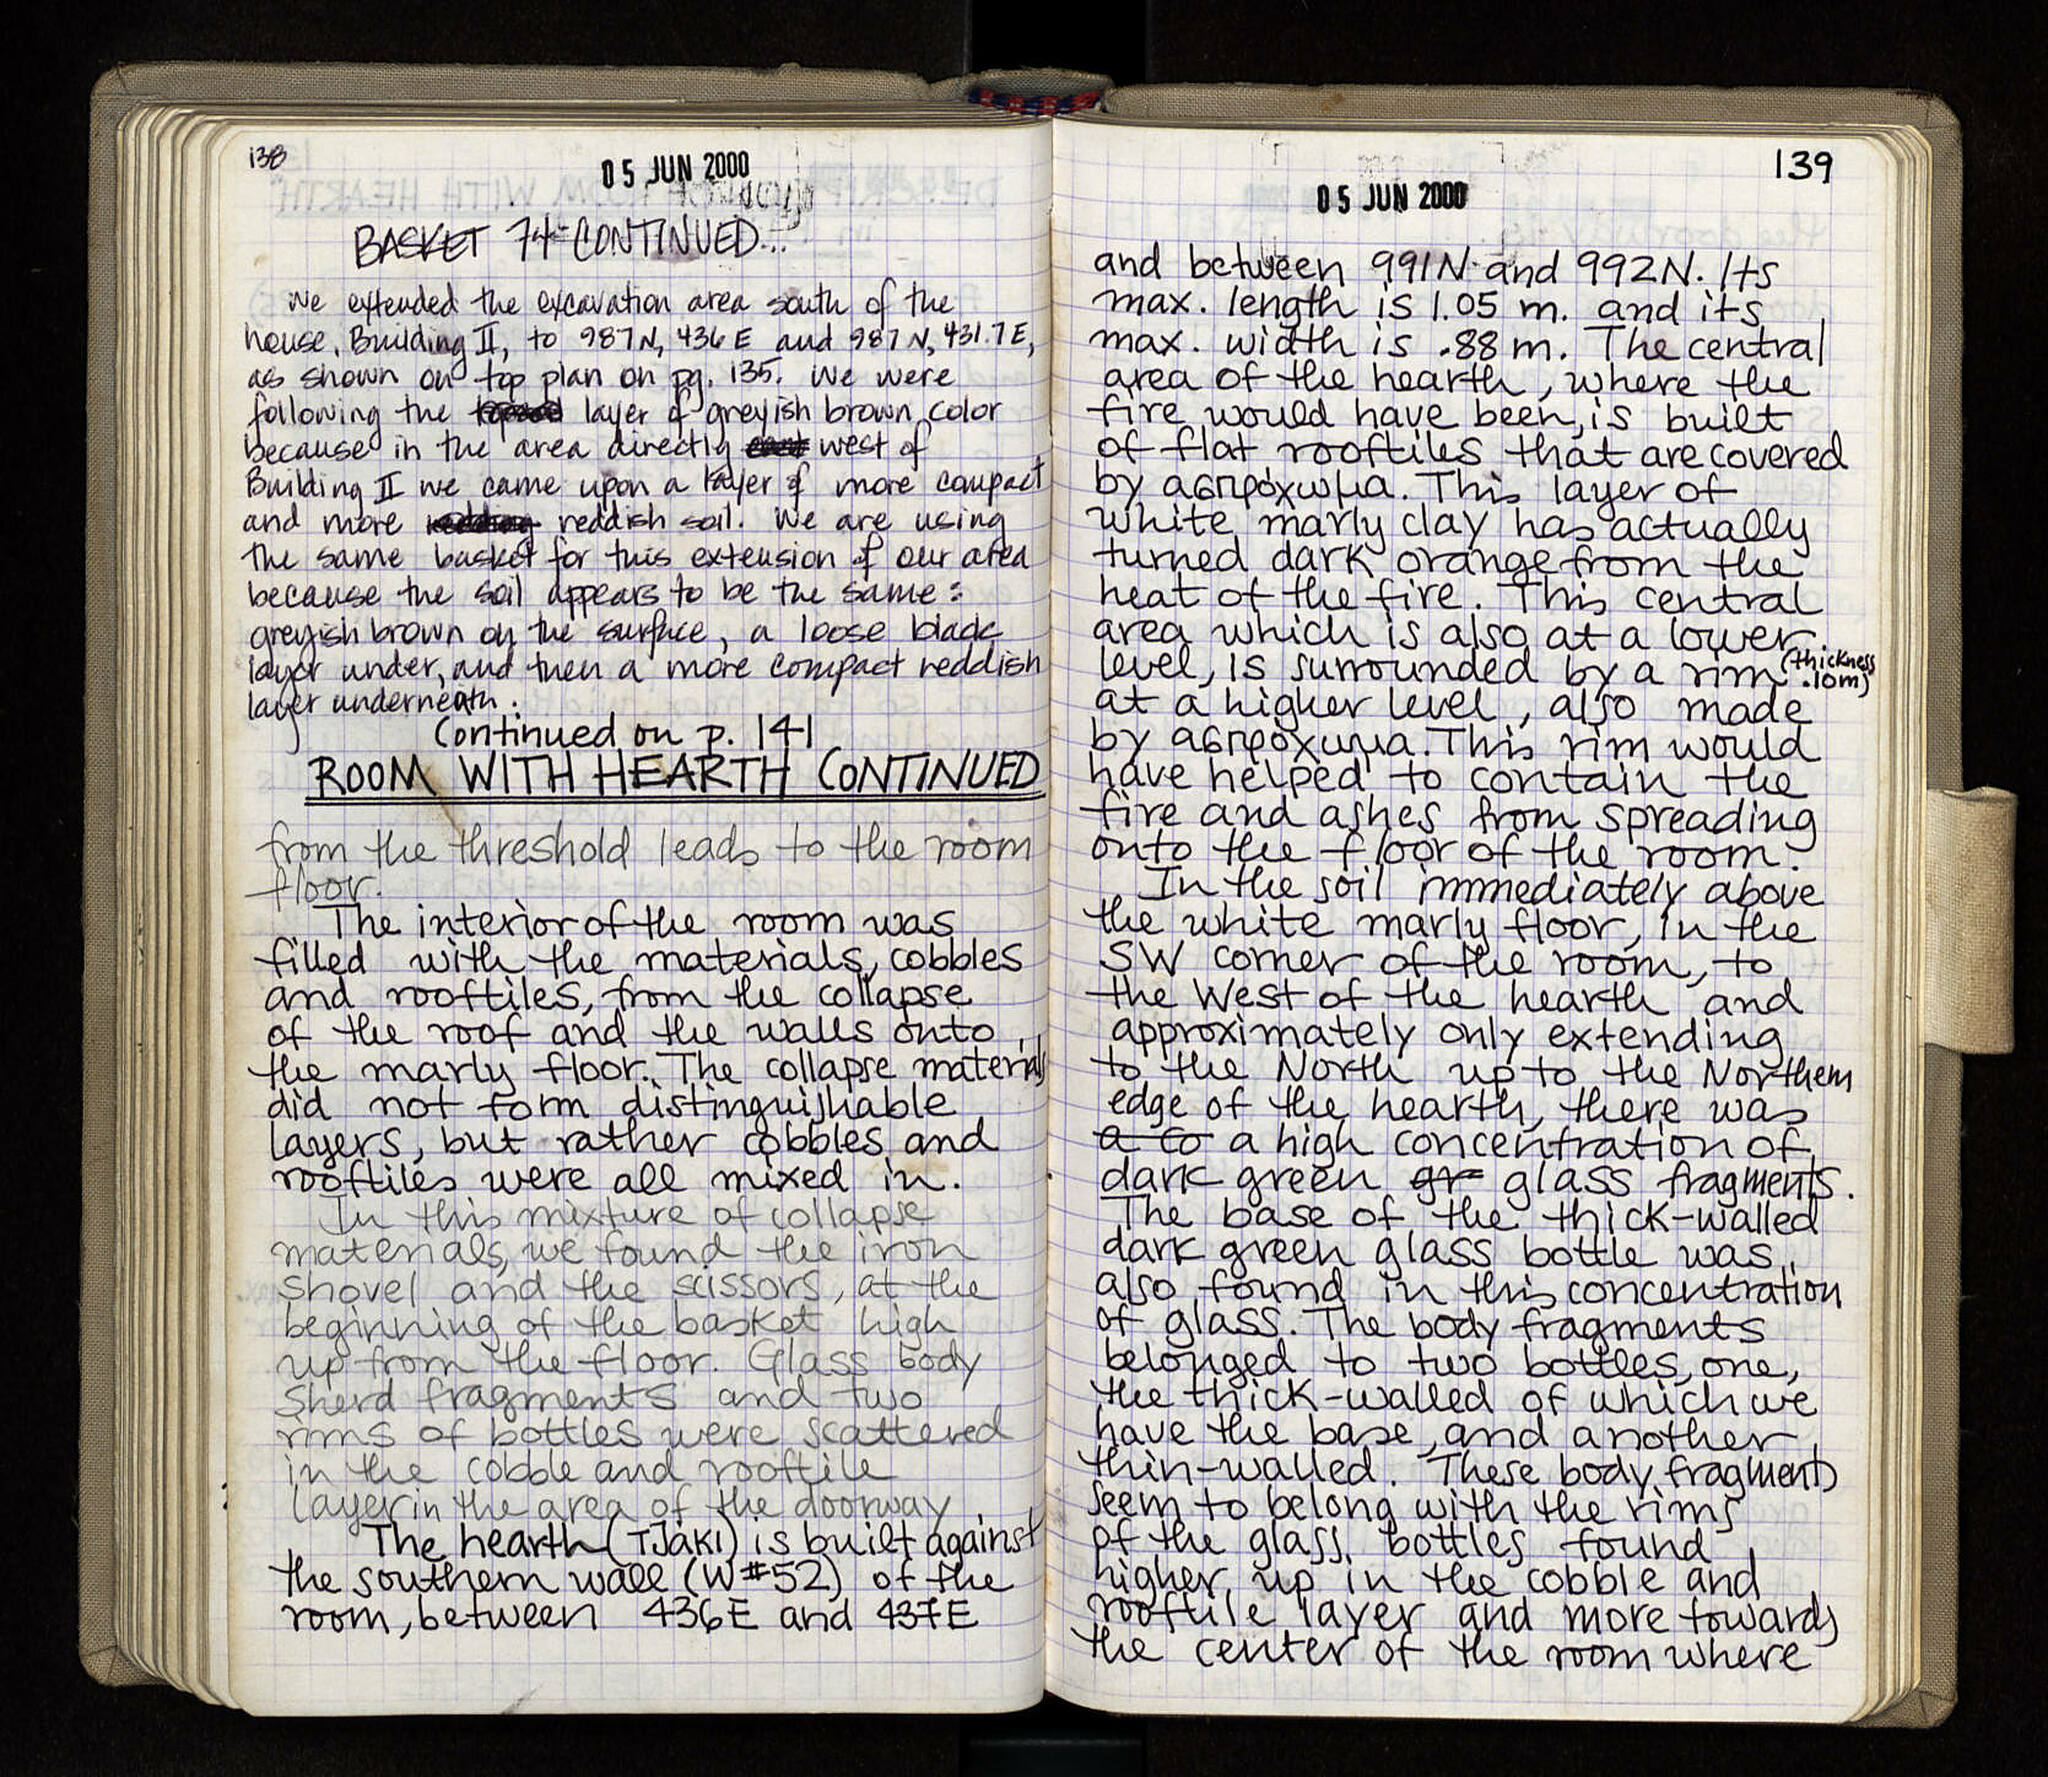 138
05 JUN 2000
BASKET 74 CONTINUED...
We extended the excavation area south of the
house, Building II, to 987N, 436E and 987N, 431.7E,
as shown on top plan on pg. 135. We were
following the layer of greyish brown color
because in the area directly west of
Building II we came upon a layer of more compact
and more reddish soil. We are using
the same basket for this extension of our area
because the soil appears to be the same:
greyish brown on the surface, a loose black
layer under, and then a more compact reddish
layer underneath.
Continued on p. 141
ROOM WITH HEARTH CONTINUED
from the threshold leads to the room
floor.
The interior of the room was
filled with the materials, cobbles
and rooftiles, from the collapse
of the roof and the walls onto
the marly floor. The collapse materials
did not form distinguishable
layers, but rather cobbles and
rooftiles were all mixed in.
In this mixture of collapse
materials, we found the iron
shovel and the scissors, at the
beginning of the basket high
up from the floor. Glass body
sherd fragments and two
rims of bottles were scattered
in the cobble and rooftile
layer in the area of the doorway
The hearth (TJAKI) is built against
the southern wall (W#52) of the
room, between 436E and 437E
139
05 JUN 2000
and between 991N and 992N. Its
max. length is 1.05 m. and its
max. width is .88 m. The central
area of the hearth, where the
fire would have been, is built
of flat rooftiles that are covered
by ασπρόχωμα. This layer of
white marly clay has actually
turned dark orange from the
heat of the fire. This central
area which is also at a lower
level, is surrounded by a rim (thickness .10m)
at a higher level, also made
by ασπρόχωμα. This rim would
have helped to contain the
fire and ashes from spreading
onto the floor of the room.
In the soil immediately above
the white marly floor, in the
SW corner of the room, to
the West of the hearth and
approximately only extending
to the North up to the Northern
edge of the hearth, there was
a co a high concentration of
dark green gr glass fragments.
The base of the thick-walled
dark green glass bottle was
also found in this concentration
of glass. The body fragments
belonged to two bottles, one,
the thick-walled of which we
have the base, and another
thin-walled. These body fragments
seem to belong with the rims
of the glass bottles found
higher up in the cobble and
rooftile layer and more towards
the center of the room where